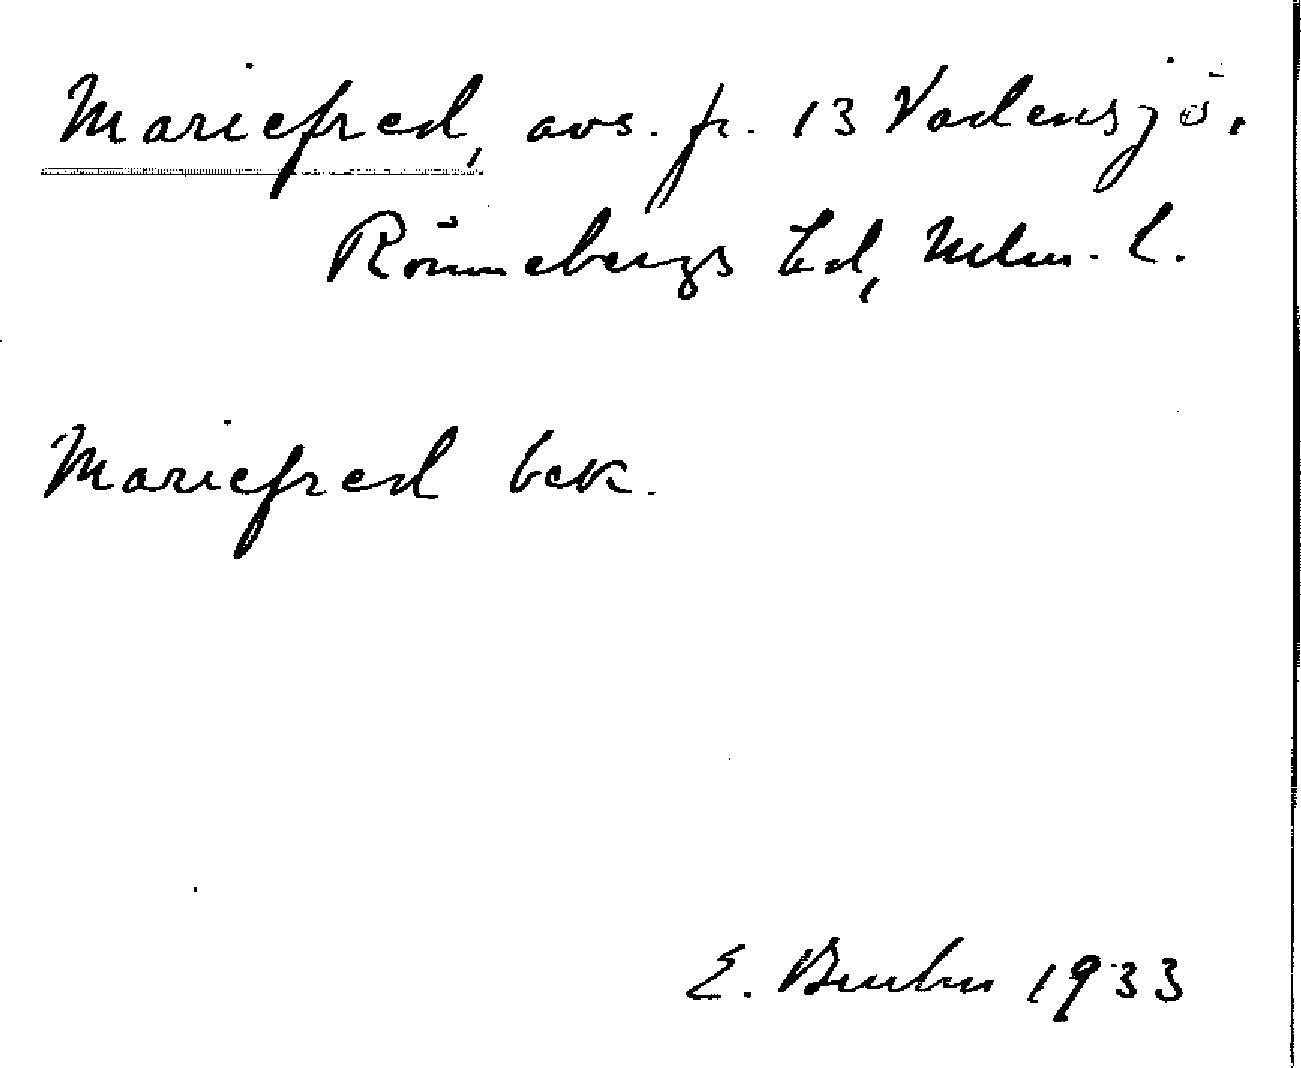 Mariefred, avs. fr. 13 Vadensjö,
Rönnebergs hd, Mlm. l.
Mariefred bek.
E. Bruhn 1933